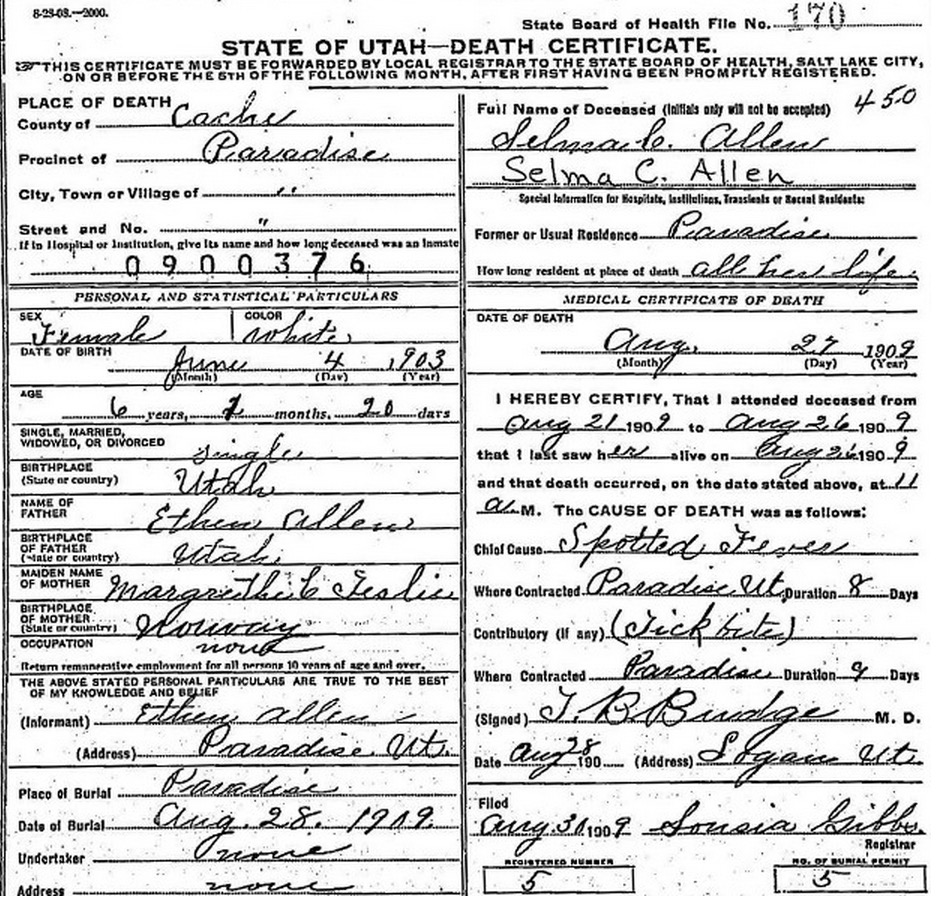 8-28-08.—2000.
State Board of Health File No. 170
STATE OF UTAH—DEATH CERTIFICATE.
THIS CERTIFICATE MUST BE FORWARDED BY LOCAL REGISTRAR TO THE STATE BOARD OF HEALTH, SALT LAKE CITY,
ON OR BEFORE THE 5TH OF THE FOLLOWING MONTH, AFTER FIRST HAVING BEEN PROMPTLY REGISTERED.
PLACE OF DEATH
County of Cache
Precinct of Paradise
City, Town or Village of "
Street and No. "
If in Hospital or Institution, give its name and how long deceased was an inmate
0900376
PERSONAL AND STATISTICAL PARTICULARS
SEX Female COLOR White
DATE OF BIRTH June 4 1903
(Month) (Day) (Year)
AGE
6 years, 2 months, 20 days
SINGLE, MARRIED,
WIDOWED, OR DIVORCED single
BIRTHPLACE
(State or country) Utah
NAME OF
FATHER Ethen Allen
BIRTHPLACE
OF FATHER
(State or country) Utah
MAIDEN NAME
OF MOTHER Margrethe C
BIRTHPLACE
OF MOTHER
(State or country) Norway
OCCUPATION none
Return remunerative employment for all persons 10 years of age and over.
THE ABOVE STATED PERSONAL PARTICULARS ARE TRUE TO THE BEST
OF MY KNOWLEDGE AND BELIEF
(Informant) Ethen Allen
(Address) Paradise Ut.
Place of Burial Paradise
Date of Burial Aug. 28. 1909.
Undertaker none
Address none
Full Name of Deceased (Initials only will not be accepted) 450
Selma C. Allen
Selma C. Allen
Special Information for Hospitals, Institutions, Transients or Recent Residents:
Former or Usual Residence Paradise
How long resident at place of death all her life.
MEDICAL CERTIFICATE OF DEATH
DATE OF DEATH
Aug. 27 1909
(Month) (Day) (Year)
I HEREBY CERTIFY, That I attended deceased from
Aug 21 1909 to Aug 26 1909
that I last saw her alive on Aug 26 1909
and that death occurred, on the date stated above, at 11
a. M. The CAUSE OF DEATH was as follows:
Chief Cause Spotted Fever
Where Contracted Paradise Ut. Duration 8 Days
Contributory (if any) (Tick bite)
Where Contracted Paradise Duration 9 Days
(Signed) T. B. Budge M. D.
Date Aug 28 190 (Address) Logan Ut.
Filed
Aug 30 1909 Gibbs.
Registrar
REGISTERED NUMBER
5
NO. OF BURIAL PERMIT
5